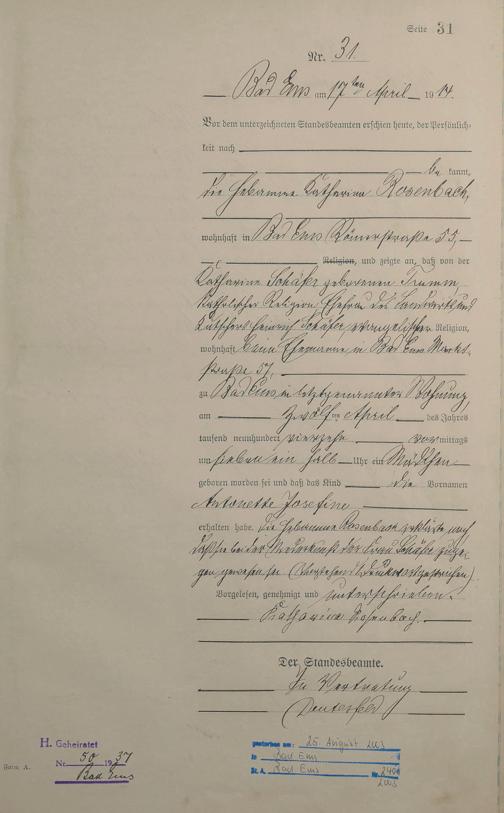 Seite 31
Nr. 31.
Bad Ems am 17ten April 1914.
Vor dem unterzeichneten Standesbeamten erschien heute, der Persönlich-
keit nach
be kannt,
die Hebamme Katharina Rosenbach,
wohnhaft in Bad Ems Römerstraße 55,
Religion, und zeigte an, daß von der
Katharine Schäfer geborenen Trumm,
katholischer Religion Ehefrau des Landwirts und
Kutschers Heinrich Schäfer, evangelischer Religion,
wohnhaft beim Ehemanne in Bad Ems Markt-
straße 57,
zu Bad Ems in letztgenannter Wohnung
am zwölften April des Jahres
tausend neunhundert vierzehn vormittags
um sieben ein halb Uhr ein Mädchen
geboren worden sei und daß das Kind die Vornamen
Antonette Josefine
erhalten habe. Die Hebamme Rosenbach erklärte noch
daß sie bei der Niederkunft der Frau Schäfer zuge-
gen gewesen sei (Vorstehend 1 Druckwort gestrichen)
Vorgelesen, genehmigt und unterschrieben.
Katharina Rosenbach.
Der Standesbeamte.
In Vertretung
H. Geheiratet
Nr. 50 1937
Bad Ems
Form A.
gestorben am: 25. August 2003
in Bad Ems
St. A. Bad Ems Nr.
2003